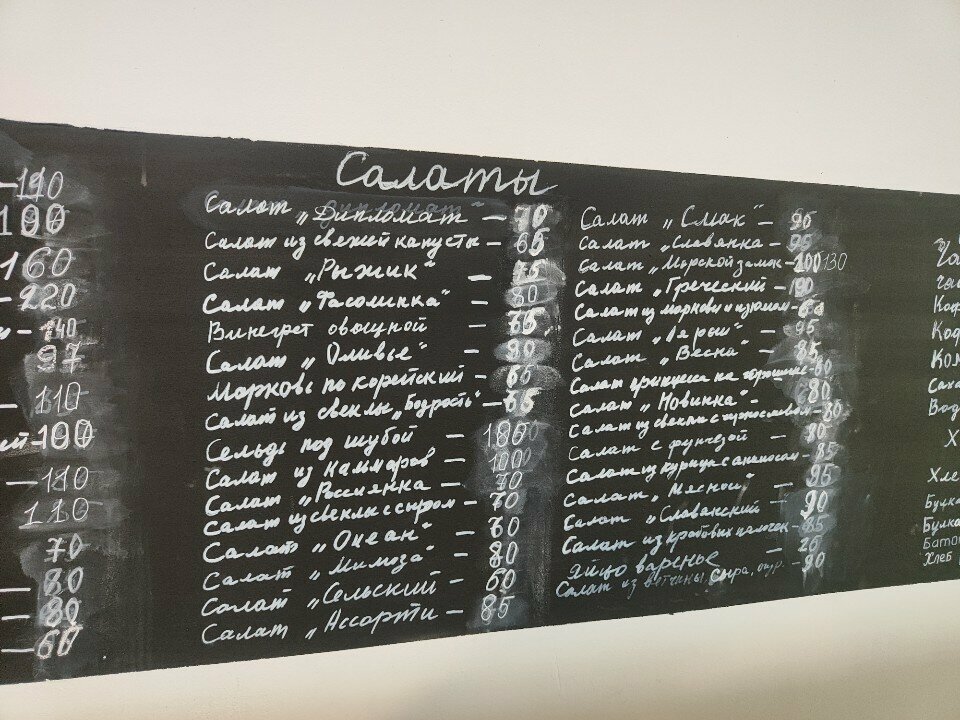 Салаты
110
100
160
220
140
97
110
100
110
110
70
80
80
60
Салат „Дипломат" — 70
Салат из свежей капусты — 65
Салат „Рыжик" — 75
Салат „Фасолинка" — 80
Винегрет овощной — 65
Салат „Оливье" — 90
Морковь по корейский — 65
Салат из свеклы „Бодрость" — 65
Сельдь под шубой — 100
Салат из кальмаров — 100
Салат „Россиянка — 70
Салат из свеклы с сыром — 70
Салат „Океан" — 70
Салат „Мимоза" — 80
Салат „Сельский — 60
Салат „Ассорти — 85
Салат „Смак" — 95
Салат „Славянка — 95
Салат „Морской замок — 130
Салат „Греческий — 190
Салат из моркови и изюмом — 60
Салат — 95
Салат „Весна" — 85
Салат принцесса на горошине — 80
Салат „Новинка" — 80
Салат из свеклы с черносливом — 80
Салат с фунчезой — 80
Салат из курицы с ананасом — 85
Салат „Мясной" — 95
Салат „Славянский — 90
Салат из крабовых палочек — 85
Яйцо вареное — 25
Салат из ветчины, сыра, огур. — 90
Коф
Коф
Саха
Вод
Х
Хле
Булка
Булка
Батон
Хлеб